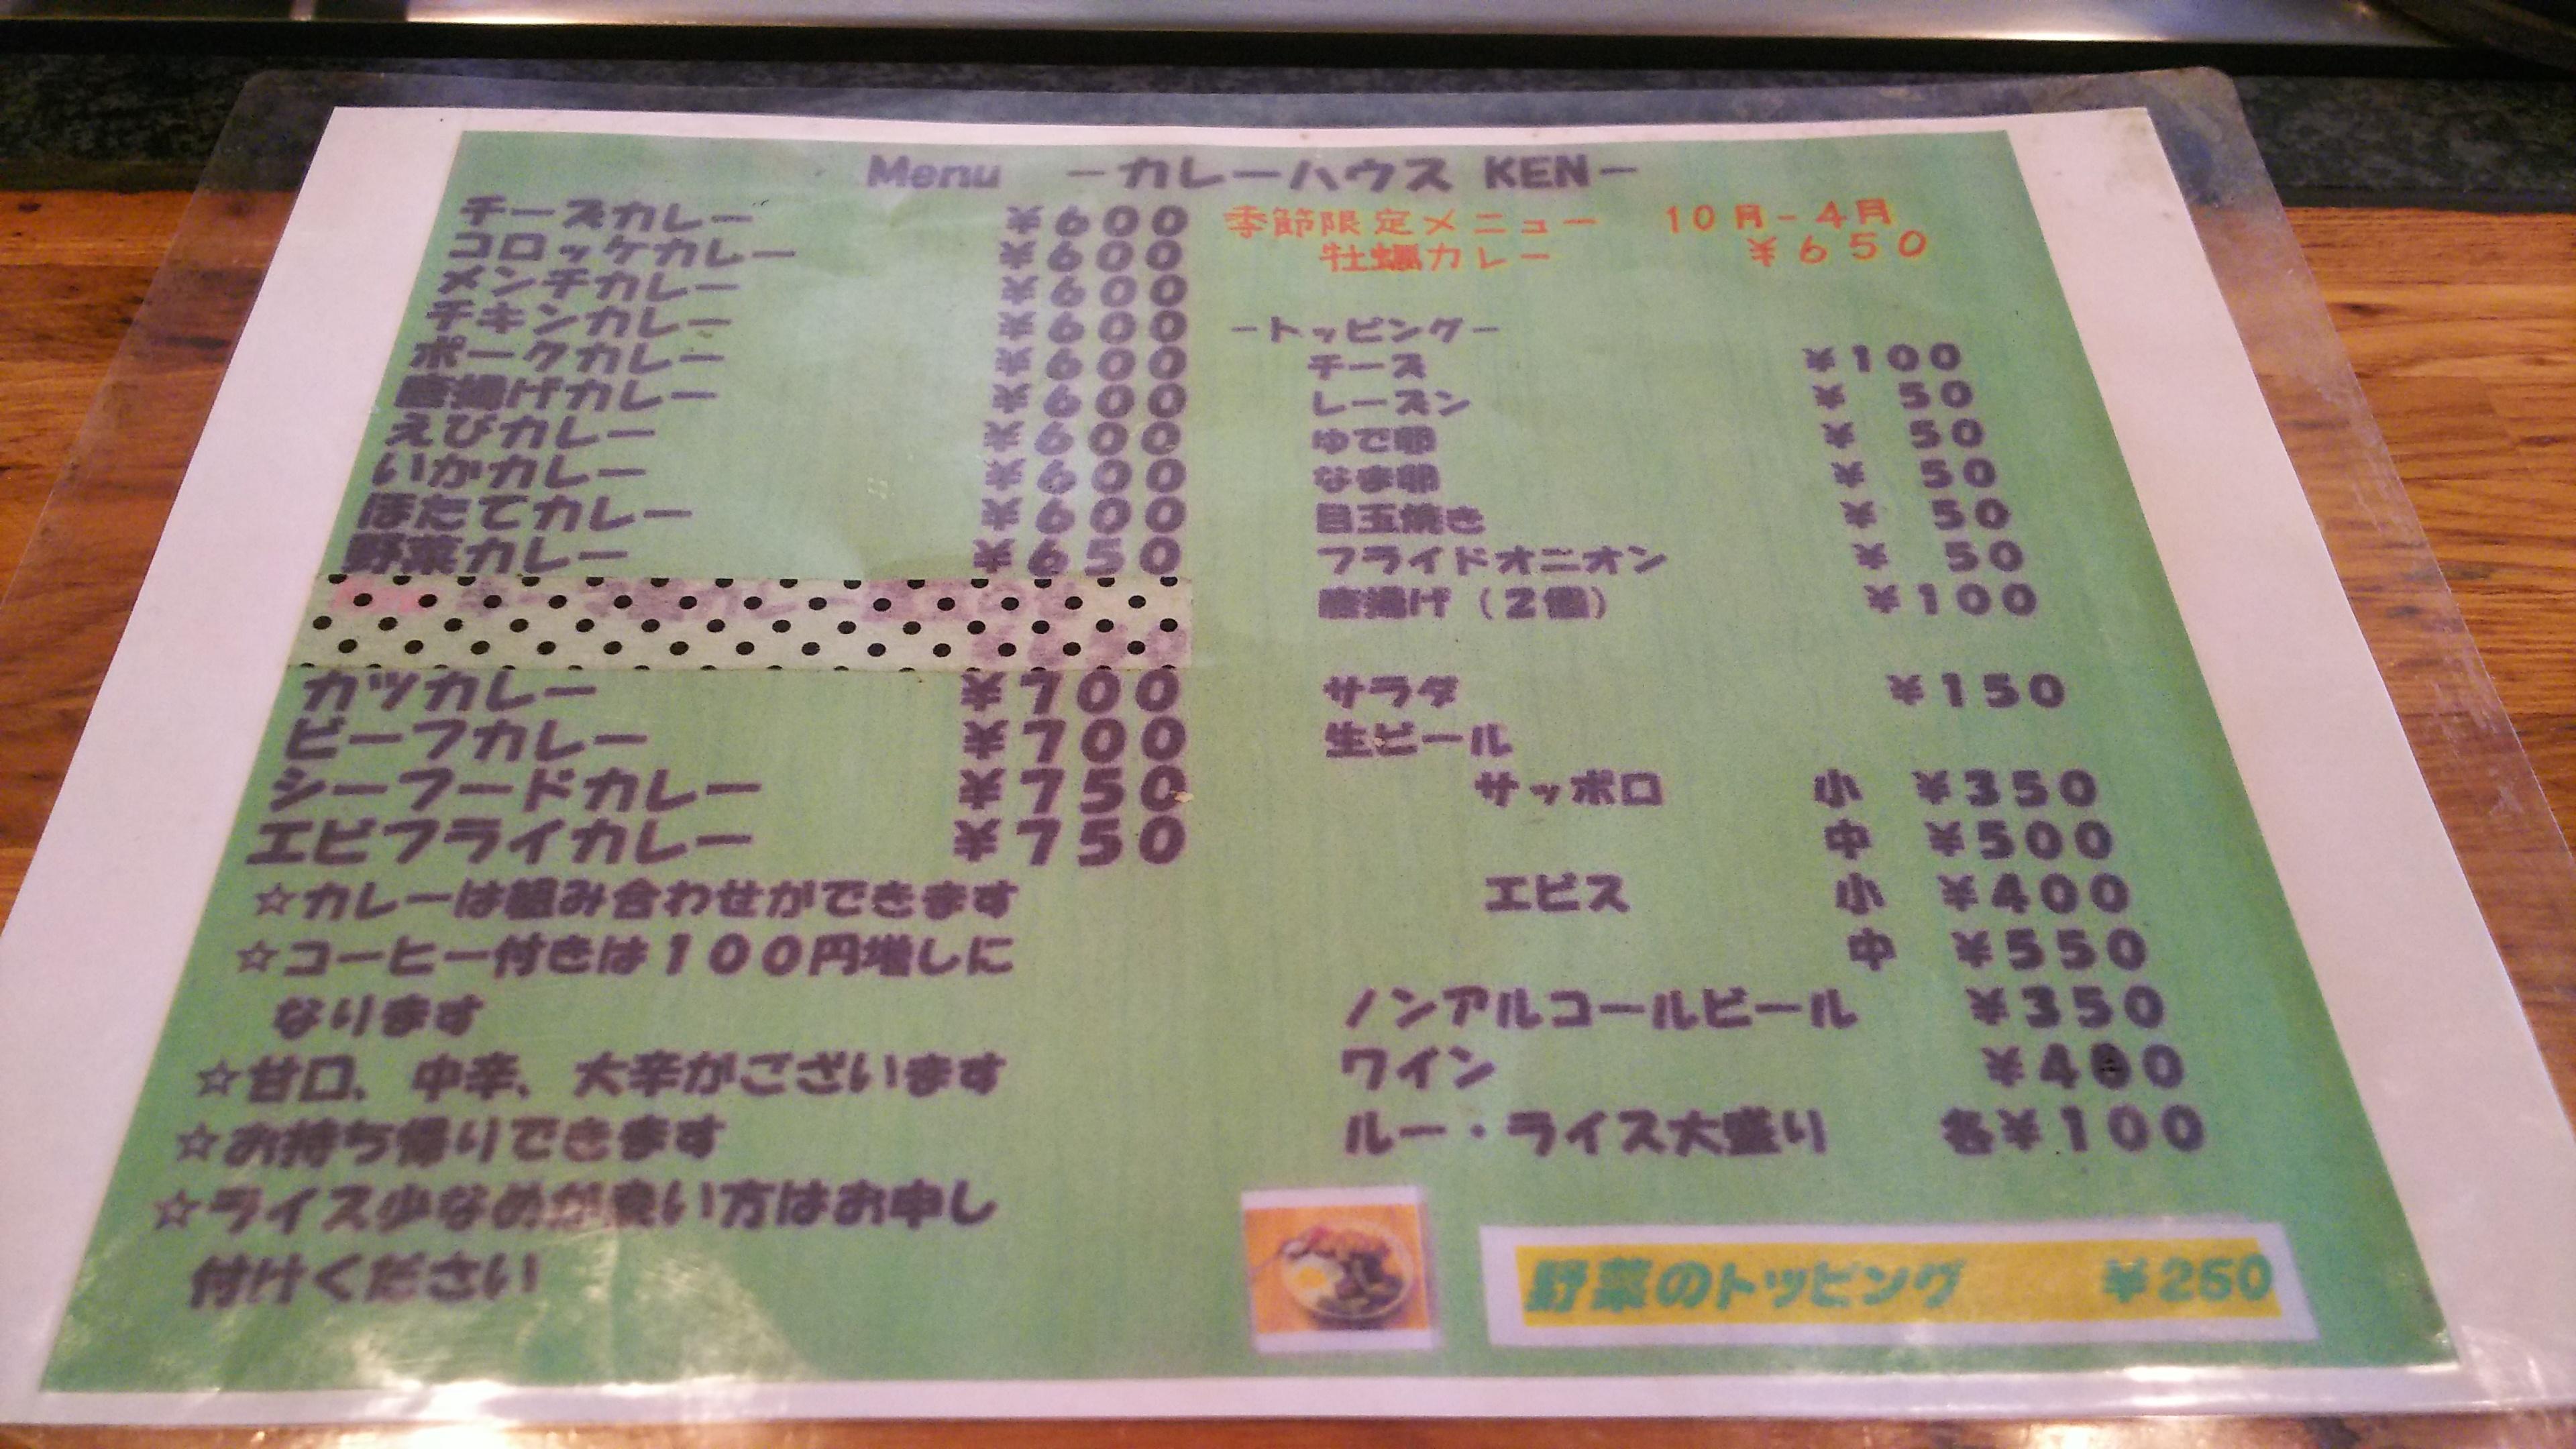 Menu －カレーハウス KEN－
チーズカレー ￥６００
コロッケカレー ￥６００
メンチカレー ￥６００
チキンカレー ￥６００
ポークカレー ￥６００
唐揚げカレー ￥６００
えびカレー ￥６００
いかカレー ￥６００
ほたてカレー ￥６００
野菜カレー ￥６５０
カツカレー ￥７００
ビーフカレー ￥７００
シーフードカレー ￥７５０
エビフライカレー ￥７５０
☆カレーは組み合わせができます
☆コーヒー付きは１００円増しに
なります
☆甘口、中辛、大辛がございます
☆お持ち帰りできます
☆ライス少なめが良い方はお申し
付けください
季節限定メニュー １０月－４月
牡蠣カレー ￥６５０
－トッピング－
チーズ ￥１００
レーズン ￥ ５０
ゆで卵 ￥ ５０
なま卵 ￥ ５０
目玉焼き ￥ ５０
フライドオニオン ￥ ５０
唐揚げ（２個） ￥１００
サラダ ￥１５０
生ビール
サッポロ 小 ￥３５０
中 ￥５００
エビス 小 ￥４００
中 ￥５５０
ノンアルコールビール ￥３５０
ワイン
ルー・ライス大盛り 各￥１００
野菜のトッピング ￥250